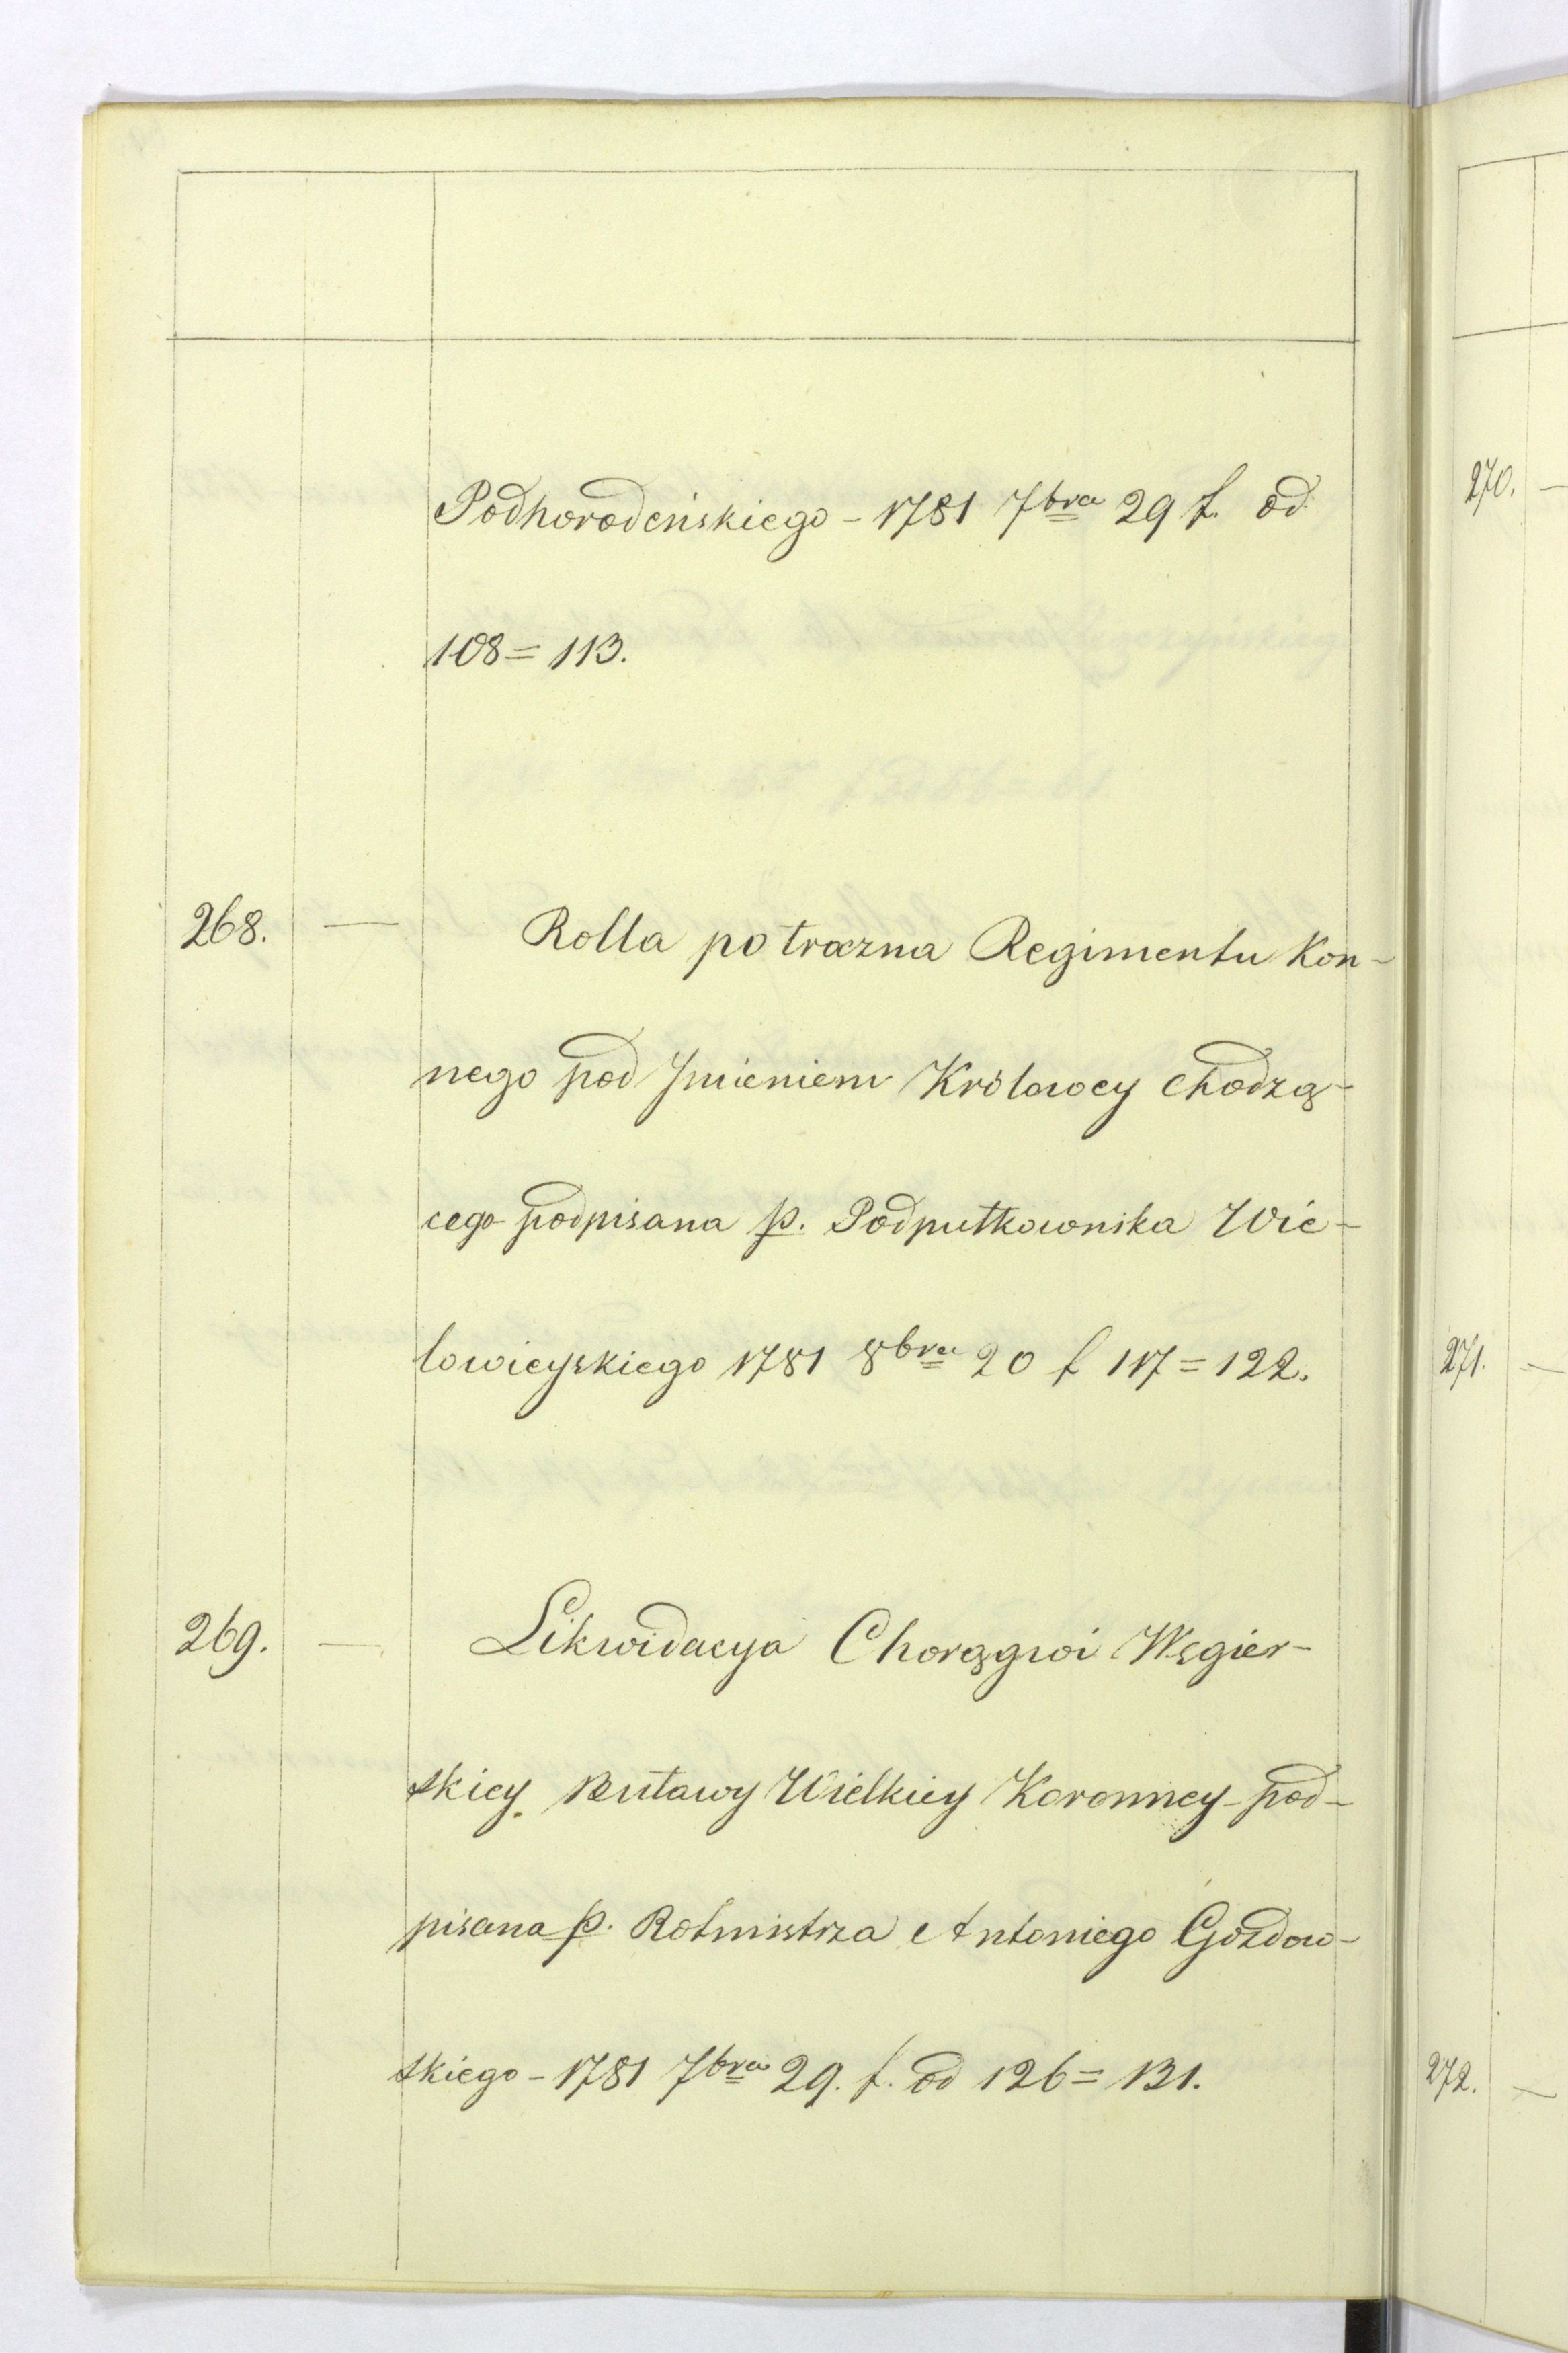 Podhorodeńskiego - 1781 7bra 29 f. od
108 = 113.
268. — Rolla potraczna Regimentu Kon-
nego pod Jmieniem Królowey chodzą-
cego podpisana p. Podpułkownika Wie-
lowieyskiego 1781 8bra 20 f 117 = 122.
269. — Likwidacya Chorągwi Węgier-
skiey Buławy Wielkiey Koronney - pod-
pisana p. Rotmistrza Antoniego Gozdow-
skiego - 1781 7bra 29. f. od 126 = 131.
270. —
271. —
272. —